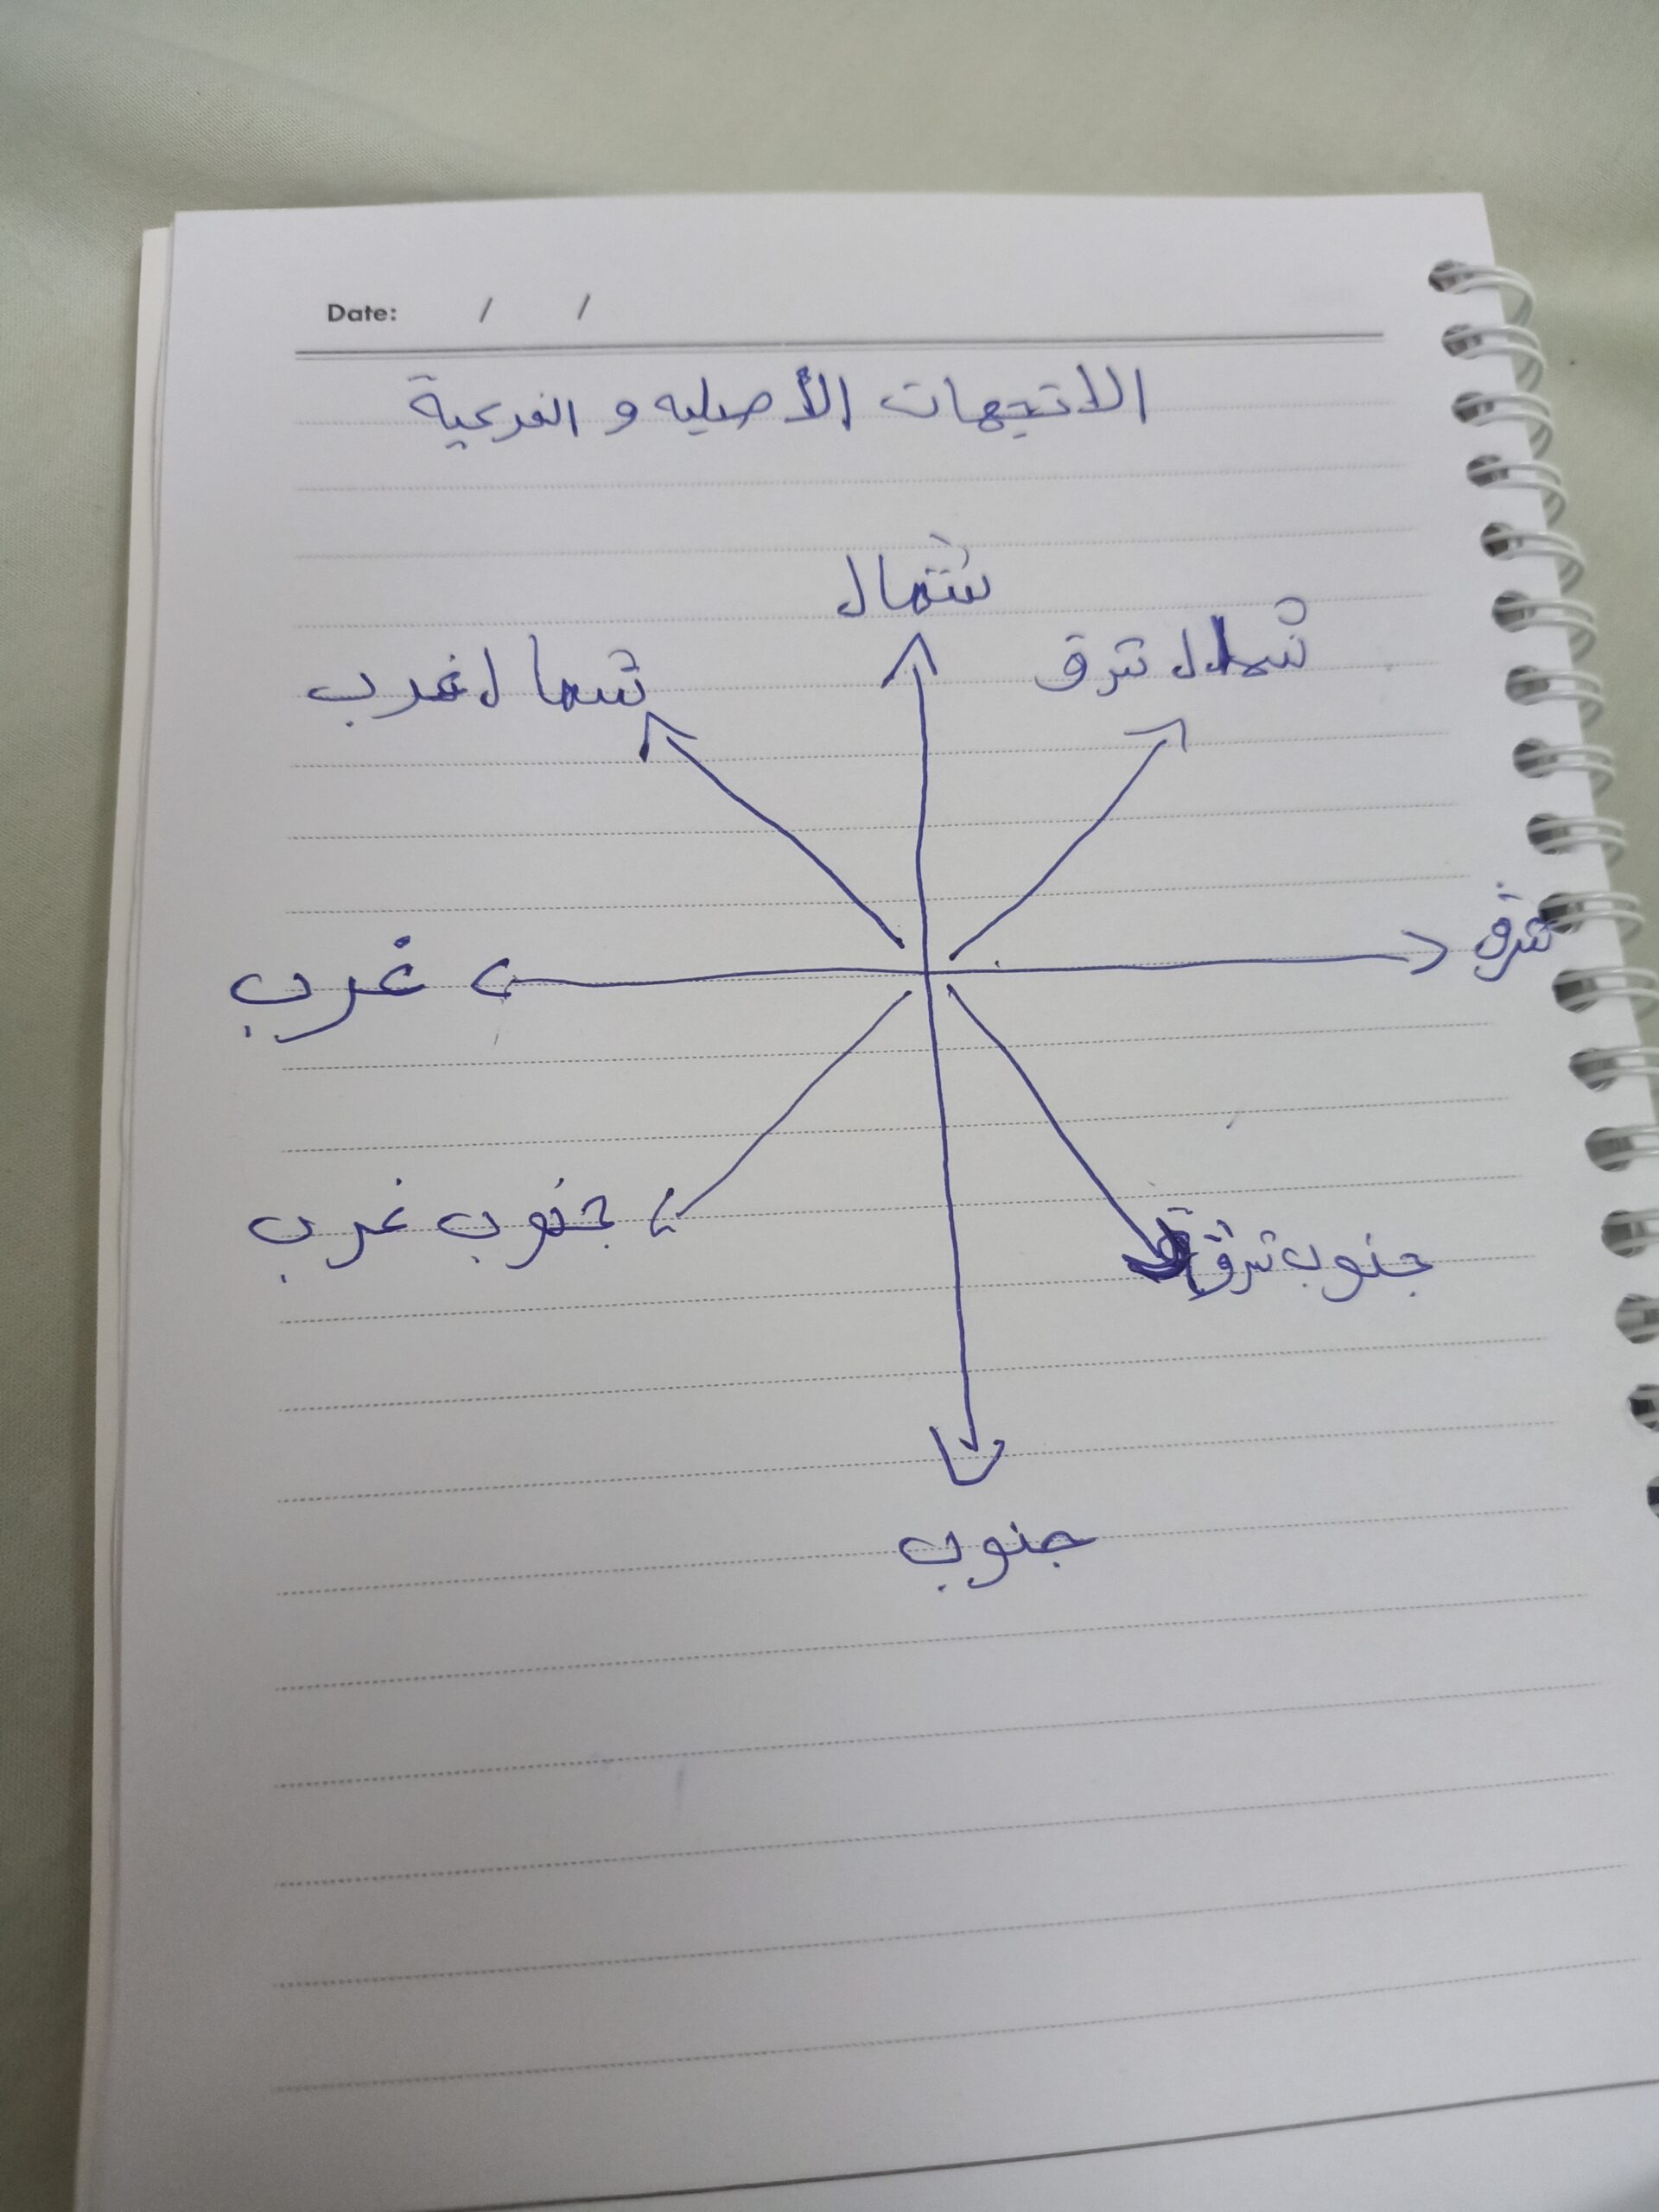 Date: / /
الاتجهات الأصليه و الفرعية
شمال
شمال شرق
شمال غرب
شرق
غرب
جنوب غرب
جنوب شرق
جنوب